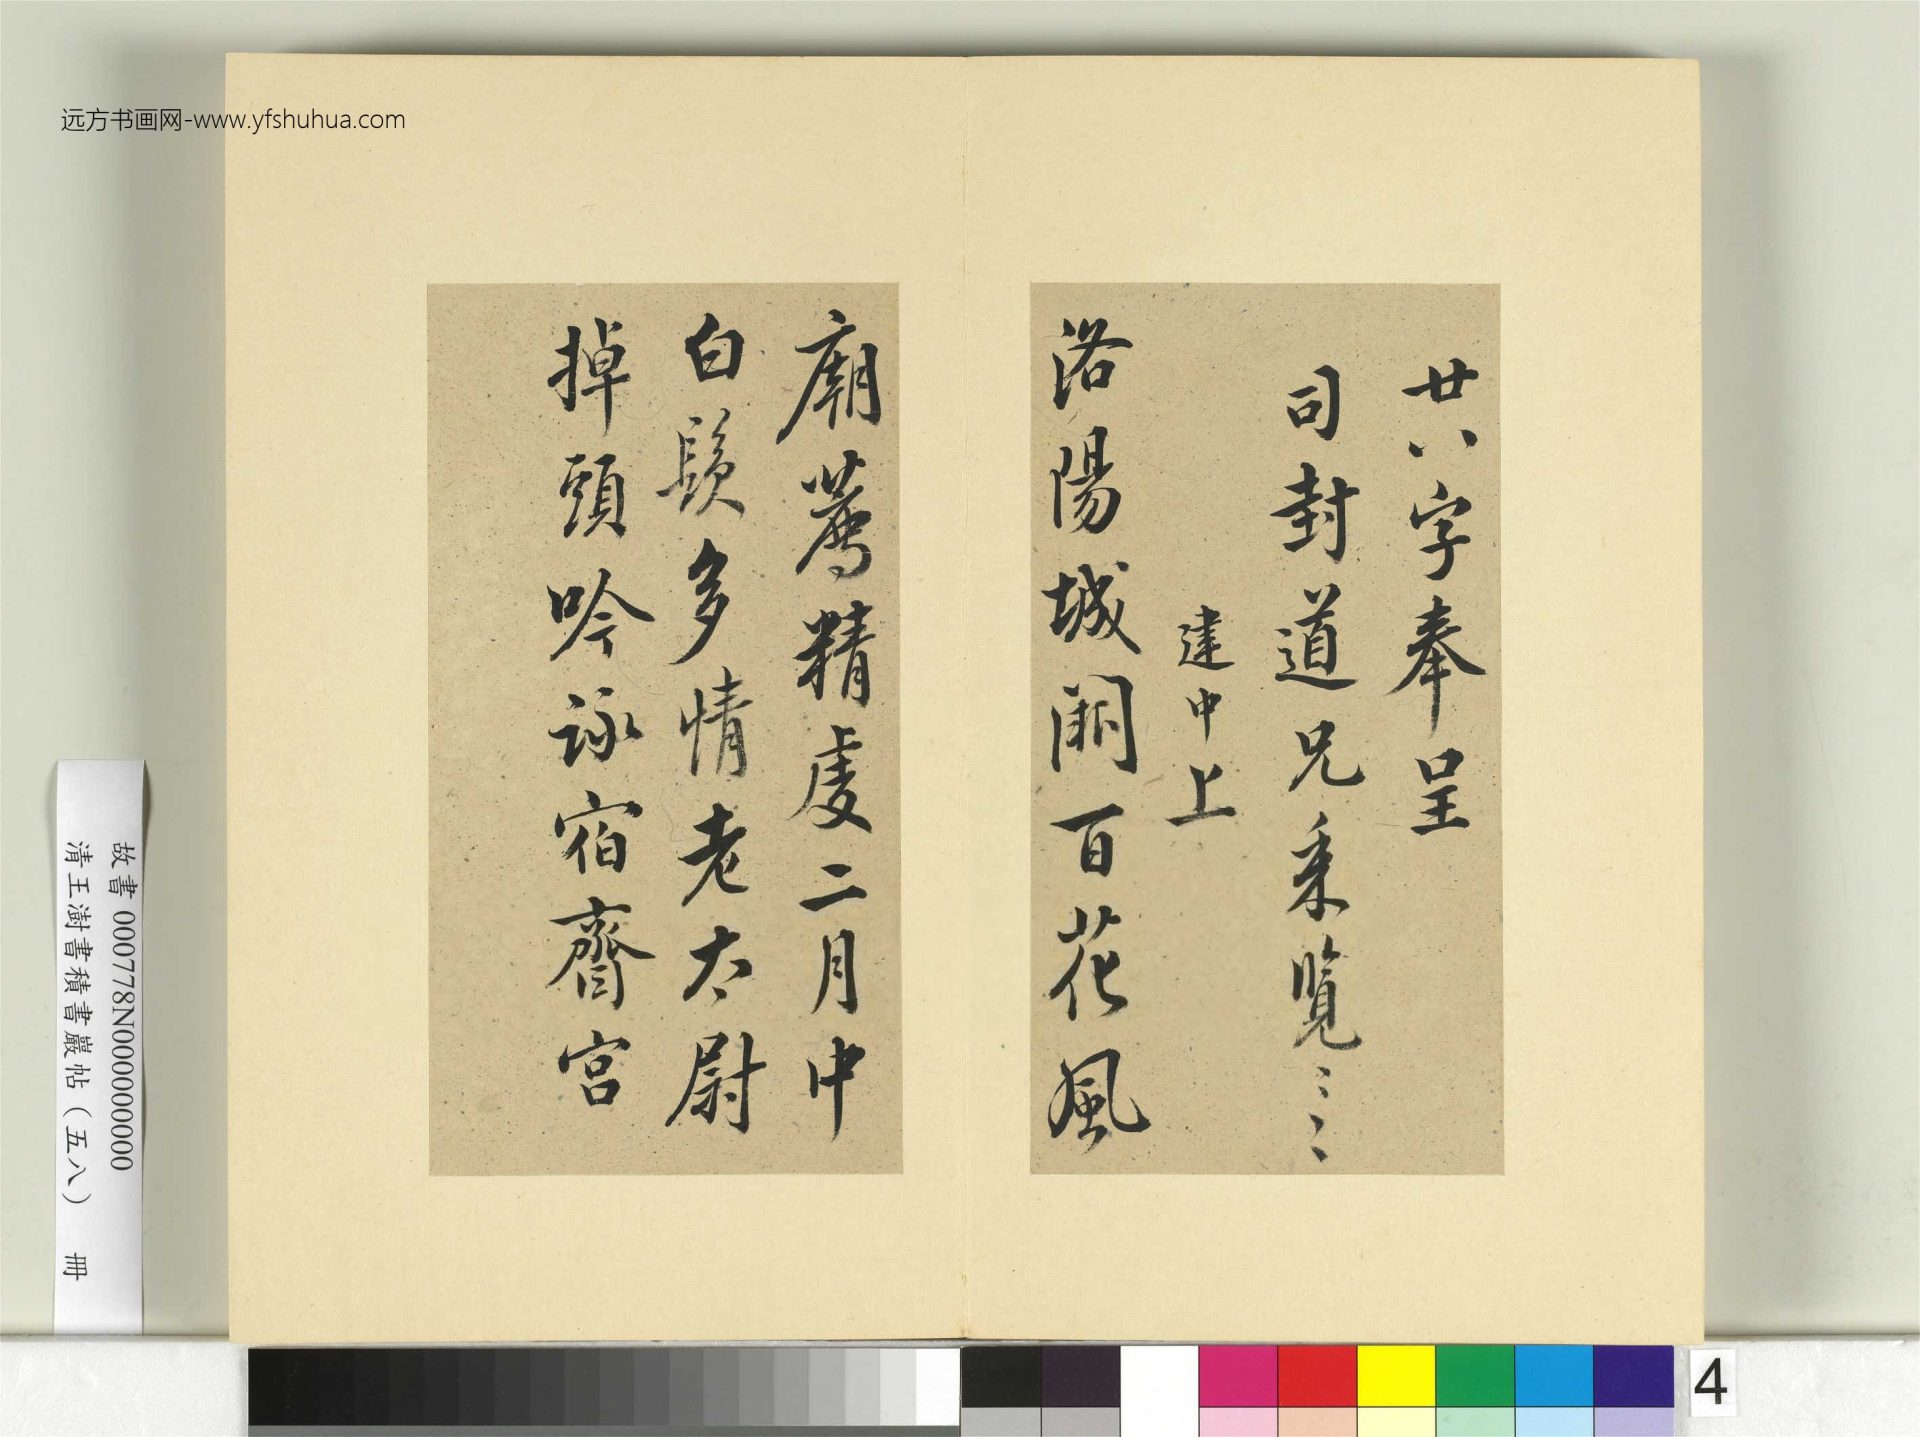 远方书画网-www.yfshuhua.com
廿八字奉呈
司封道兄采覽〻〻
建中上
洛陽城闕百花風
廟薦精虔二月中
白鬚多情老太尉
掉頭吟詠宿齋宮
故書 000778N000000000
清王澍書積書巖帖(五八) 冊
4